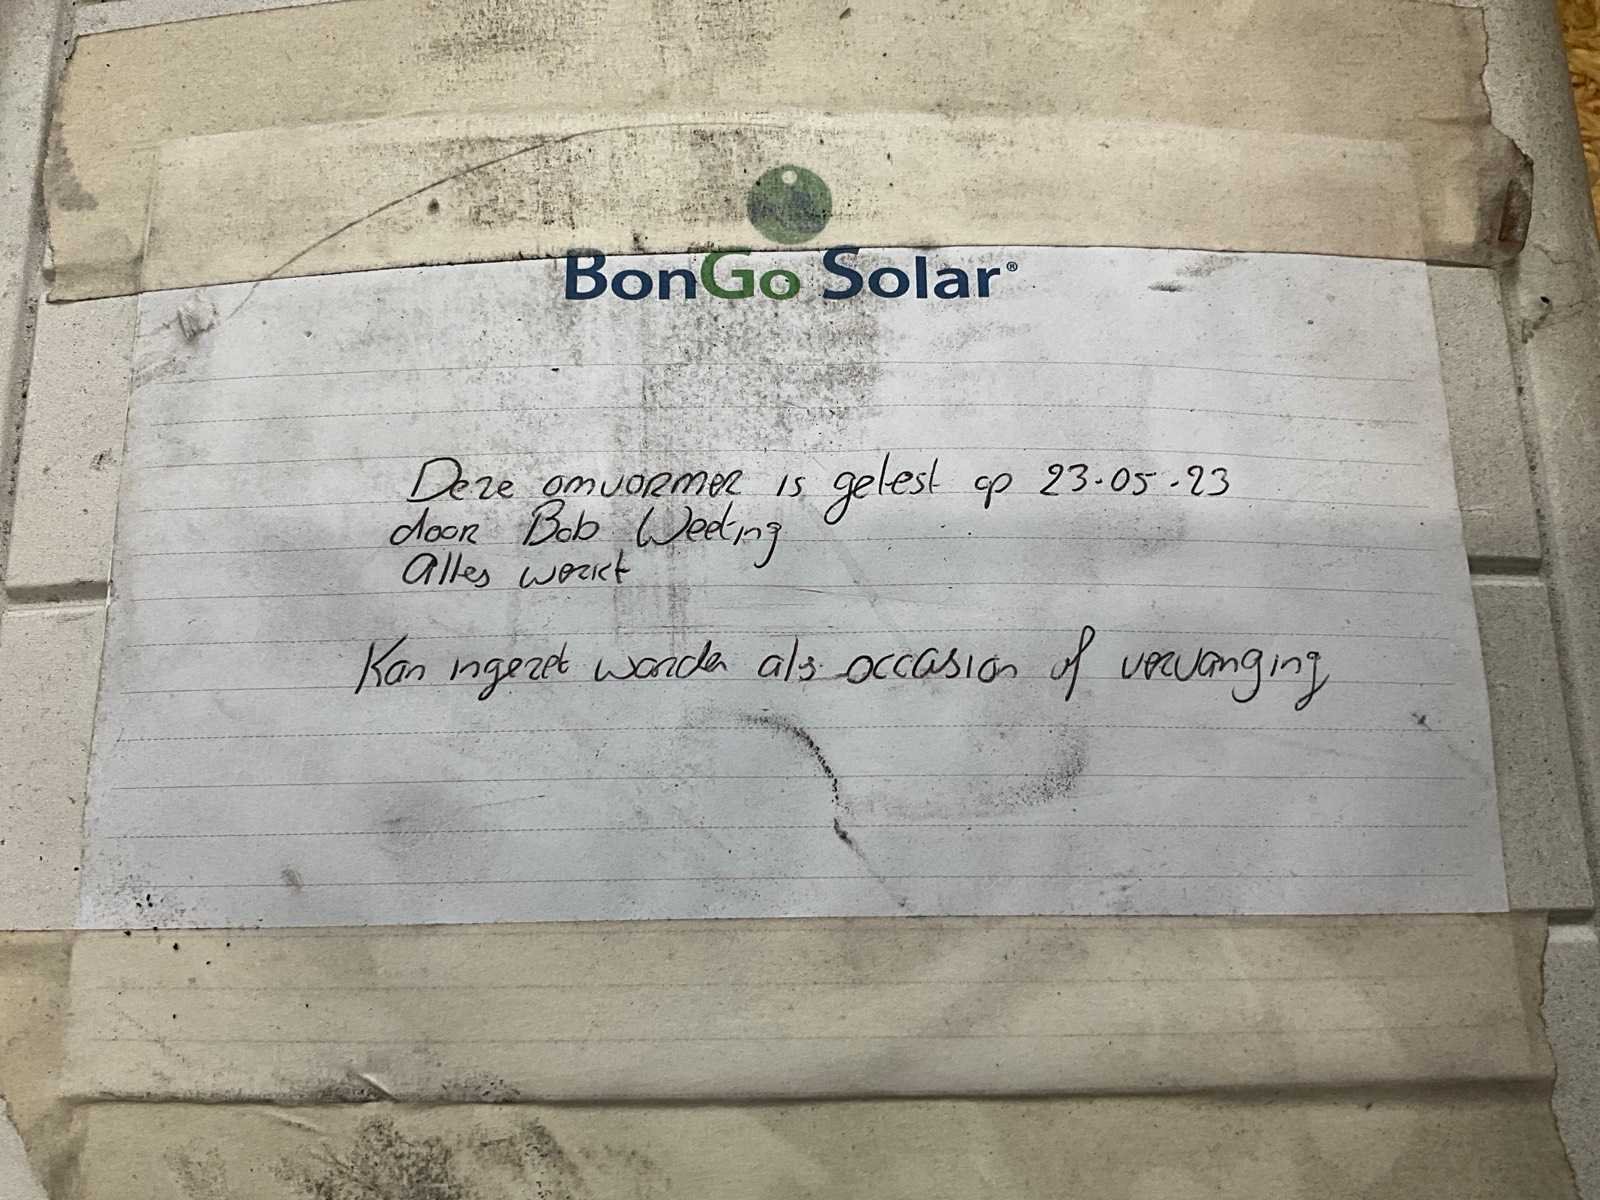 BonGo Solar®
Deze omvormer is getest op 23-05-23
door Bob Weeting
Alles werkt
Kan ingezet worden als occasion of vervanging